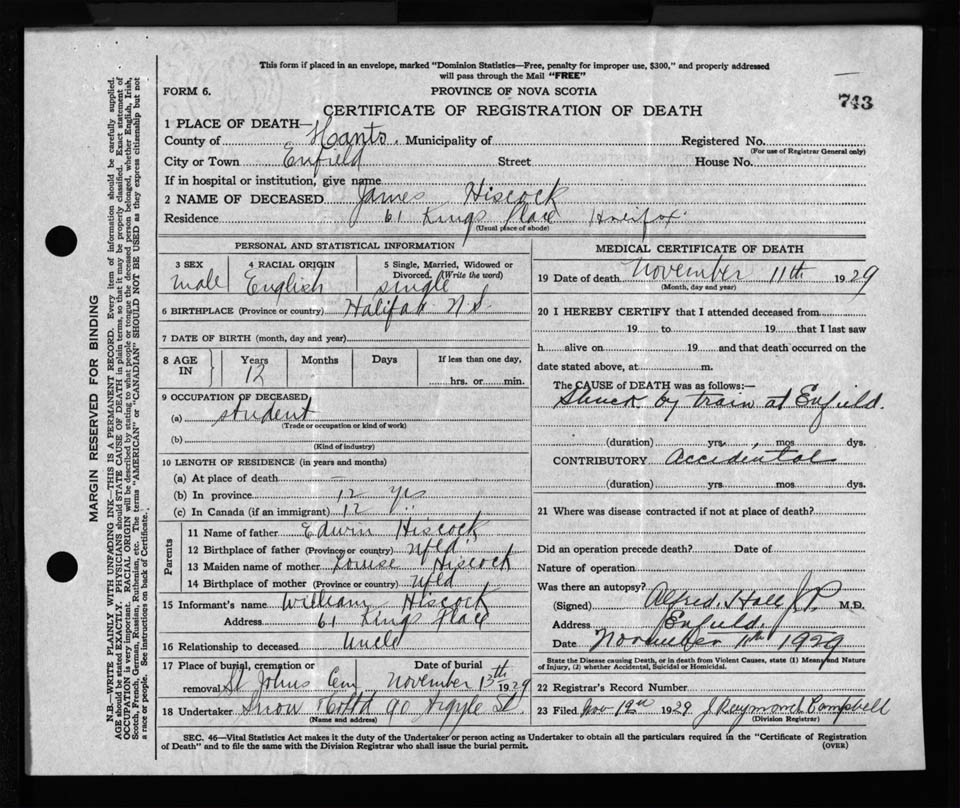 This form if placed in an envelope, marked "Dominion Statistics—Free, penalty for improper use, $300," and properly addressed
will pass through the Mail "FREE"
FORM 6.
PROVINCE OF NOVA SCOTIA
743
CERTIFICATE OF REGISTRATION OF DEATH
1 PLACE OF DEATH—
County of Hants. Municipality of Registered No.
(For use of Registrar General only)
City or Town Enfield Street House No.
If in hospital or institution, give name
2 NAME OF DECEASED James Hiscock
Residence 61 Kings Place Halifax
(Usual place of abode)
PERSONAL AND STATISTICAL INFORMATION
3 SEX 4 RACIAL ORIGIN 5 Single, Married, Widowed or
Divorced. (Write the word)
male English single
6 BIRTHPLACE (Province or country) Halifax N.S.
7 DATE OF BIRTH (month, day and year)
8 AGE IN Years Months Days If less than one day,
12 hrs. or min.
9 OCCUPATION OF DECEASED
(a) student
(Trade or occupation or kind of work)
(b)
(Kind of industry)
10 LENGTH OF RESIDENCE (in years and months)
(a) At place of death —
(b) In province 12 yrs
(c) In Canada (if an immigrant) 12
Parents
11 Name of father Edwin Hiscock
12 Birthplace of father (Province or country) Nfld
13 Maiden name of mother Louise Hiscock
14 Birthplace of mother (Province or country) Nfld
15 Informant's name William Hiscock
Address 61 Kings Place
16 Relationship to deceased Uncle
17 Place of burial, cremation or removal St Johns Cem Date of burial November 13th 1929
18 Undertaker Snow & Co Ltd 90 Argyle St.
(Name and address)
MEDICAL CERTIFICATE OF DEATH
19 Date of death November 11th 1929
(Month, day and year)
20 I HEREBY CERTIFY that I attended deceased from
19 to 19 that I last saw
h alive on 19 and that death occurred on the
date stated above, at m.
The CAUSE OF DEATH was as follows:—
Struck by train at Enfield.
(duration) yrs. mos dys.
CONTRIBUTORY Accidental
(duration) yrs. mos. dys.
21 Where was disease contracted if not at place of death?
Did an operation precede death? Date of
Nature of operation
Was there an autopsy?
(Signed) Alfred Hall J.P. M.D.
Address Enfield.
Date November 11th 1929
State the Disease causing Death, or in death from Violent Causes, state (1) Means and Nature
of Injury, (2) whether Accidental, Suicidal or Homicidal.
22 Registrar's Record Number
23 Filed Nov 12th 1929 J Raymond Campbell
(Division Registrar)
SEC. 46—Vital Statistics Act makes it the duty of the Undertaker or person acting as Undertaker to obtain all the particulars required in the "Certificate of Registration
of Death" and to file the same with the Division Registrar who shall issue the burial permit.
(OVER)
MARGIN RESERVED FOR BINDING
N.B.—WRITE PLAINLY, WITH UNFADING INK—THIS IS A PERMANENT RECORD. Every item of information should be carefully supplied.
AGE should be stated EXACTLY. PHYSICIANS should STATE CAUSE OF DEATH in plain terms, so that it may be properly classified. Exact statement of
OCCUPATION is very important. RACIAL ORIGIN will be described by stating to what people or tongue the deceased person belonged, whether English, Irish,
Scotch, French, German, Russian, Ruthenian, etc. The terms "AMERICAN" or "CANADIAN" SHOULD NOT BE USED as they express citizenship but not
a race or people. See instructions on back of Certificate.